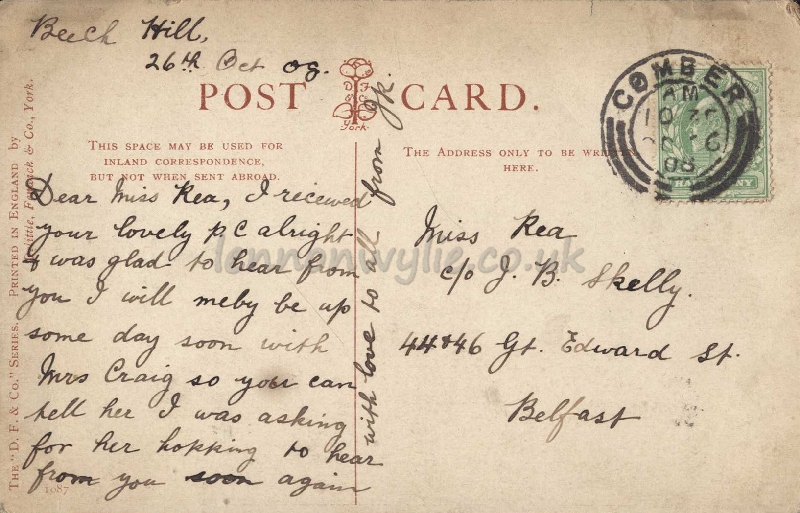 Beech Hill,
26th Oct 08.
POST CARD.
York.
THIS SPACE MAY BE USED FOR
INLAND CORRESPONDENCE,
BUT NOT WHEN SENT ABROAD.
THE ADDRESS ONLY TO BE
HERE.
COMBER
AM
Dear Miss Rea, I received
your lovely p.c alright
& was glad to hear from
you I will meby be up
some day soon with
Mrs Craig so your can
tell her I was asking
for her hopking to hear
from you soon again
with love to all from
Miss Rea
c/o J. B. Skelly.
44&46 Gt. Edward St.
Belfast
lennonwylie.co.uk
THE "D. F. & CO." SERIES. PRINTED IN ENGLAND by
& Co., York.
1087